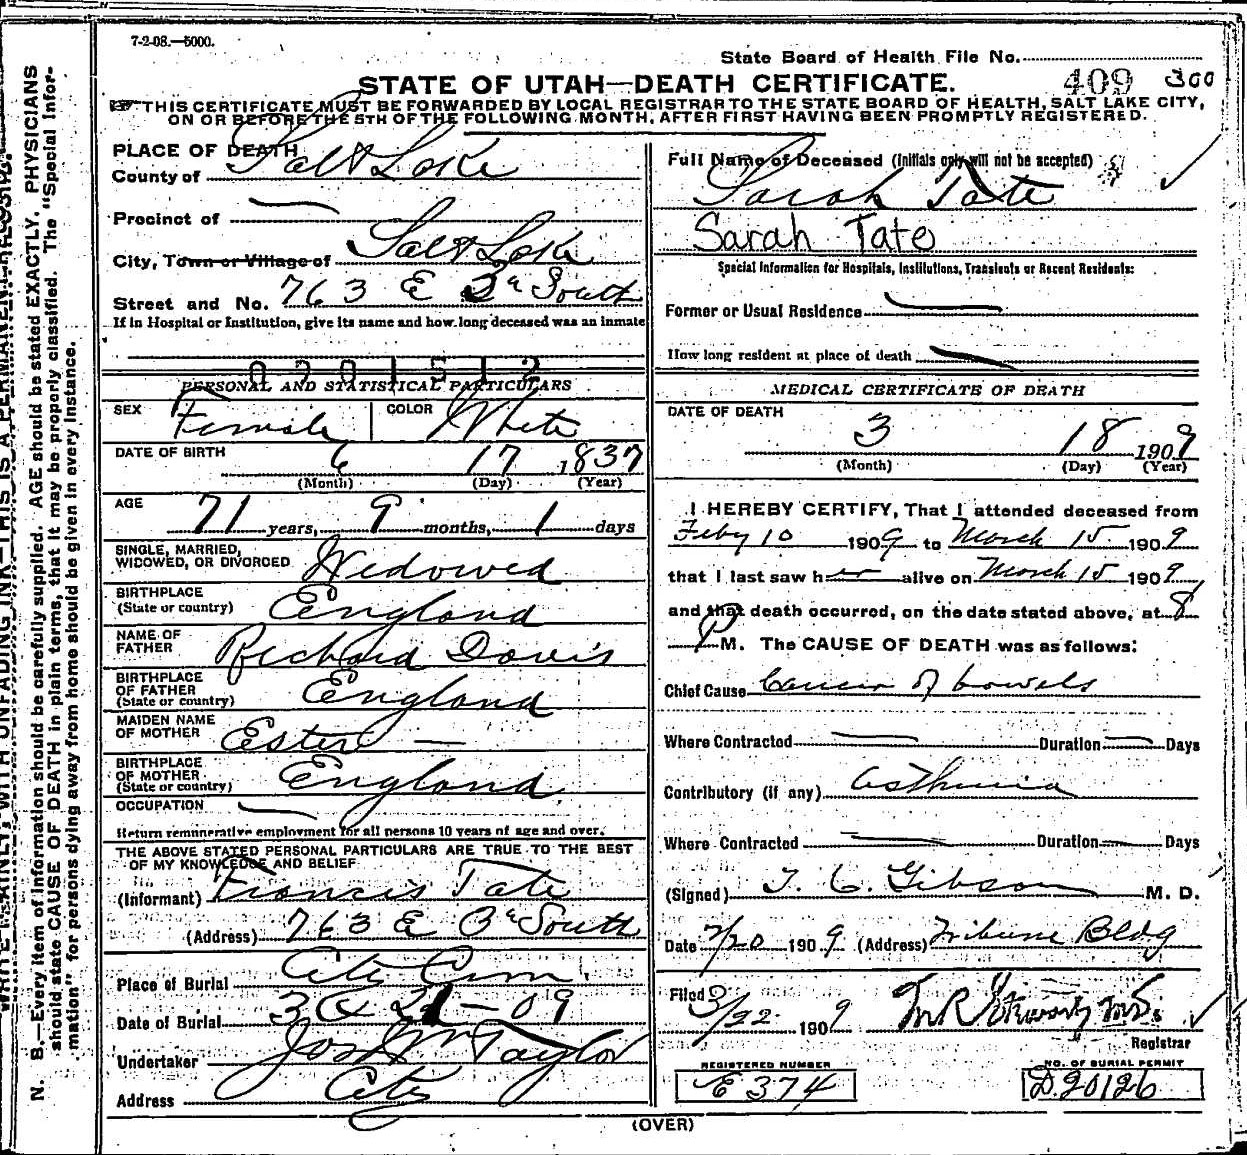 7-2-08.—5000.
State Board of Health File No.
409 300
STATE OF UTAH—DEATH CERTIFICATE.
THIS CERTIFICATE MUST BE FORWARDED BY LOCAL REGISTRAR TO THE STATE BOARD OF HEALTH, SALT LAKE CITY,
ON OR BEFORE THE 5TH OF THE FOLLOWING MONTH, AFTER FIRST HAVING BEEN PROMPTLY REGISTERED.
PLACE OF DEATH
County of Salt Lake
Precinct of —
City, Town or Village of Salt Lake
Street and No. 763 E 3d South
If in Hospital or Institution, give its name and how long deceased was an inmate
0201512
PERSONAL AND STATISTICAL PARTICULARS
SEX Female COLOR White
DATE OF BIRTH 6 17 1837
(Month) (Day) (Year)
AGE 71 years, 9 months, 1 days
SINGLE, MARRIED,
WIDOWED, OR DIVORCED Widowed
BIRTHPLACE
(State or country) England
NAME OF
FATHER Richard Davis
BIRTHPLACE
OF FATHER
(State or country) England
MAIDEN NAME
OF MOTHER Ester —
BIRTHPLACE
OF MOTHER
(State or country) England
OCCUPATION —
Return remunerative employment for all persons 10 years of age and over.
THE ABOVE STATED PERSONAL PARTICULARS ARE TRUE TO THE BEST
OF MY KNOWLEDGE AND BELIEF
(Informant) Francis Tate
(Address) 763 E 3d South
Place of Burial City Cem
Date of Burial 3 21-09
Undertaker Jos Wm Taylor
Address City
Full Name of Deceased (Initials only will not be accepted)
Sarah Tate
Sarah Tate
Special Information for Hospitals, Institutions, Transients or Recent Residents:
Former or Usual Residence —
How long resident at place of death —
MEDICAL CERTIFICATE OF DEATH
DATE OF DEATH
3 18 1909
(Month) (Day) (Year)
I HEREBY CERTIFY, That I attended deceased from
Feby 10 1909 to March 15 1909
that I last saw her alive on March 15 1909,
and that death occurred, on the date stated above, at 8
P M. The CAUSE OF DEATH was as follows:
Chief Cause Cancer of bowels
Where Contracted — Duration — Days
Contributory (if any) Asthma
Where Contracted — Duration — Days
(Signed) T. C. Gibson M. D.
Date 3/20 1909 (Address) Tribune Bldg
Filed 3/22 1909
Registrar
REGISTERED NUMBER
E 374
NO. OF BURIAL PERMIT
D.20126
(OVER)
WRITE PLAINLY, WITH UNFADING INK—THIS IS A PERMANENT RECORD.
N. B.—Every item of information should be carefully supplied. AGE should be stated EXACTLY. PHYSICIANS
should state CAUSE OF DEATH in plain terms, that it may be properly classified. The "Special Infor-
mation" for persons dying away from home should be given in every instance.